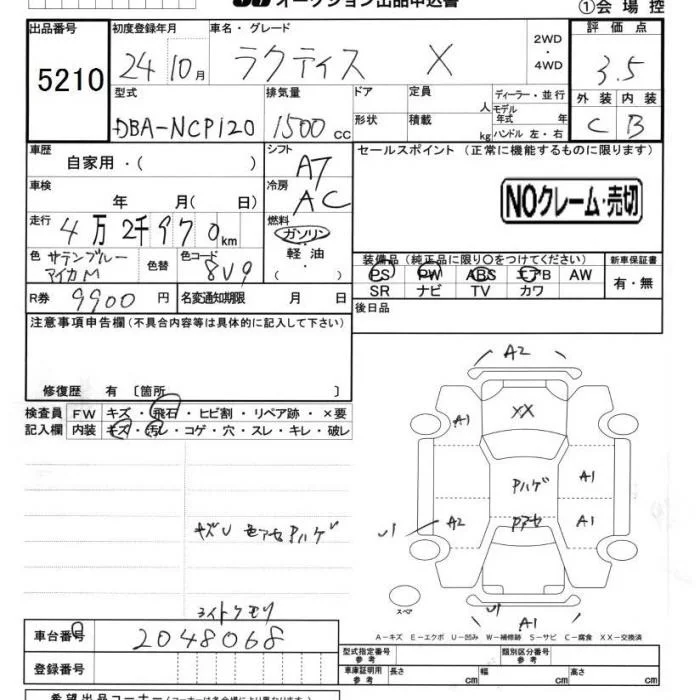 オークション出品申込書
①会場控
出品番号 初度登録年月 車名・グレード 評価点
5210 24 10月 ラクティス X 2WD・4WD 3.5
型式 排気量 ドア 定員 人 ディーラー・並行 外装 内装
DBA-NCP120 1500cc 形状 積載 kg モデル年式 年 ハンドル 左・右 C B
車歴 自家用・( ) シフト AT セールスポイント (正常に機能するものに限ります)
車検 年 月( 日) 冷房 AC
NOクレーム・売切
走行 4万2千970km 燃料 ガソリン・軽油・( )
色 サテンブルーマイカM 色替 色コード 8V9
装備品 (純正品に限り○をつけてください) 新車保証書
PS PW ABS エアB AW 有・無
SR ナビ TV カワ
R券 9900円 名変通知期限 月 日
後日品
注意事項申告欄 (不具合内容等は具体的に記入して下さい)
修復歴 有 〔箇所 〕
検査員 FW キズ・飛石・ヒビ割・リペア跡・×要
記入欄 内装 キズ・汚レ・コゲ・穴・スレ・キレ・破レ
A2
A1 XX
Pハゲ A1
U1 A2 Pアセ A1
キズU 色アセPハゲ
スペア U1
A1
ライトクモリ
A-キズ E-エクボ U-凹み W-補修跡 S-サビ C-腐食 XX-交換済
車台番号 2048068
型式指定番号 参考 類別区分番号 参考
登録番号
車庫証明用 参考 長さ cm 幅 cm 高さ cm
希望出品コーナー